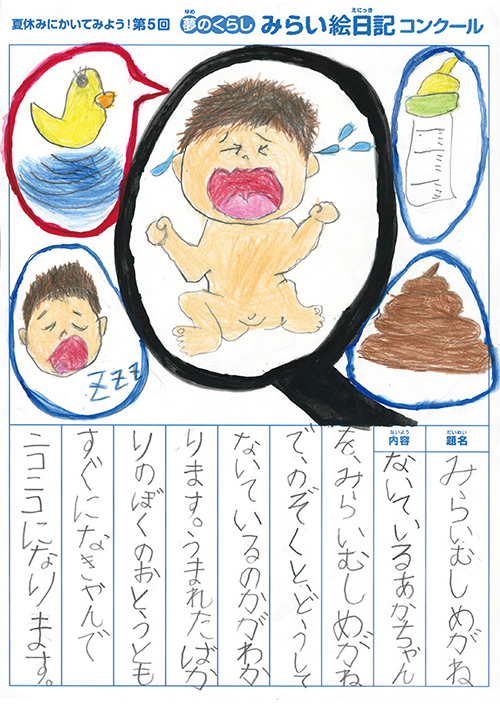 夏休みにかいてみよう!第5回 夢のくらし みらい絵日記コンクール
ゆめ
えにっき
ZZZ
だいめい
題名
みらいむしめがね
ないよう
内容
ないているあかちゃん
を、みらいむしめがね
で、のぞくと、どうして
ないているのかがわか
ります。うまれたばか
りのぼくのおとうとも
すぐになきやんで
ニコニコになります。